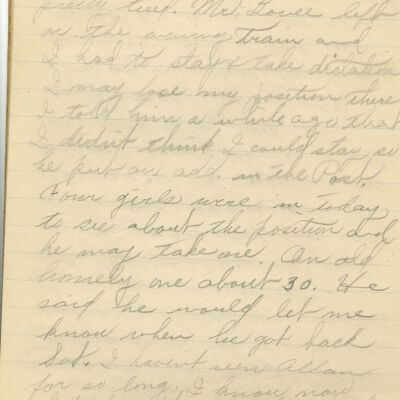 pretty tired. Mr. Lowee left
on the evening train and
I had to stay & take dictation
I may lose my position there
I told him a while ago that
I didn't think I could stay so
he put an add. in the Post.
Four girls were in today
to see about the position and
he may take one. An old
homely one about 30. He
said he would let me
know when he got back
Sat. I havent seen Allan
for so long. I know now